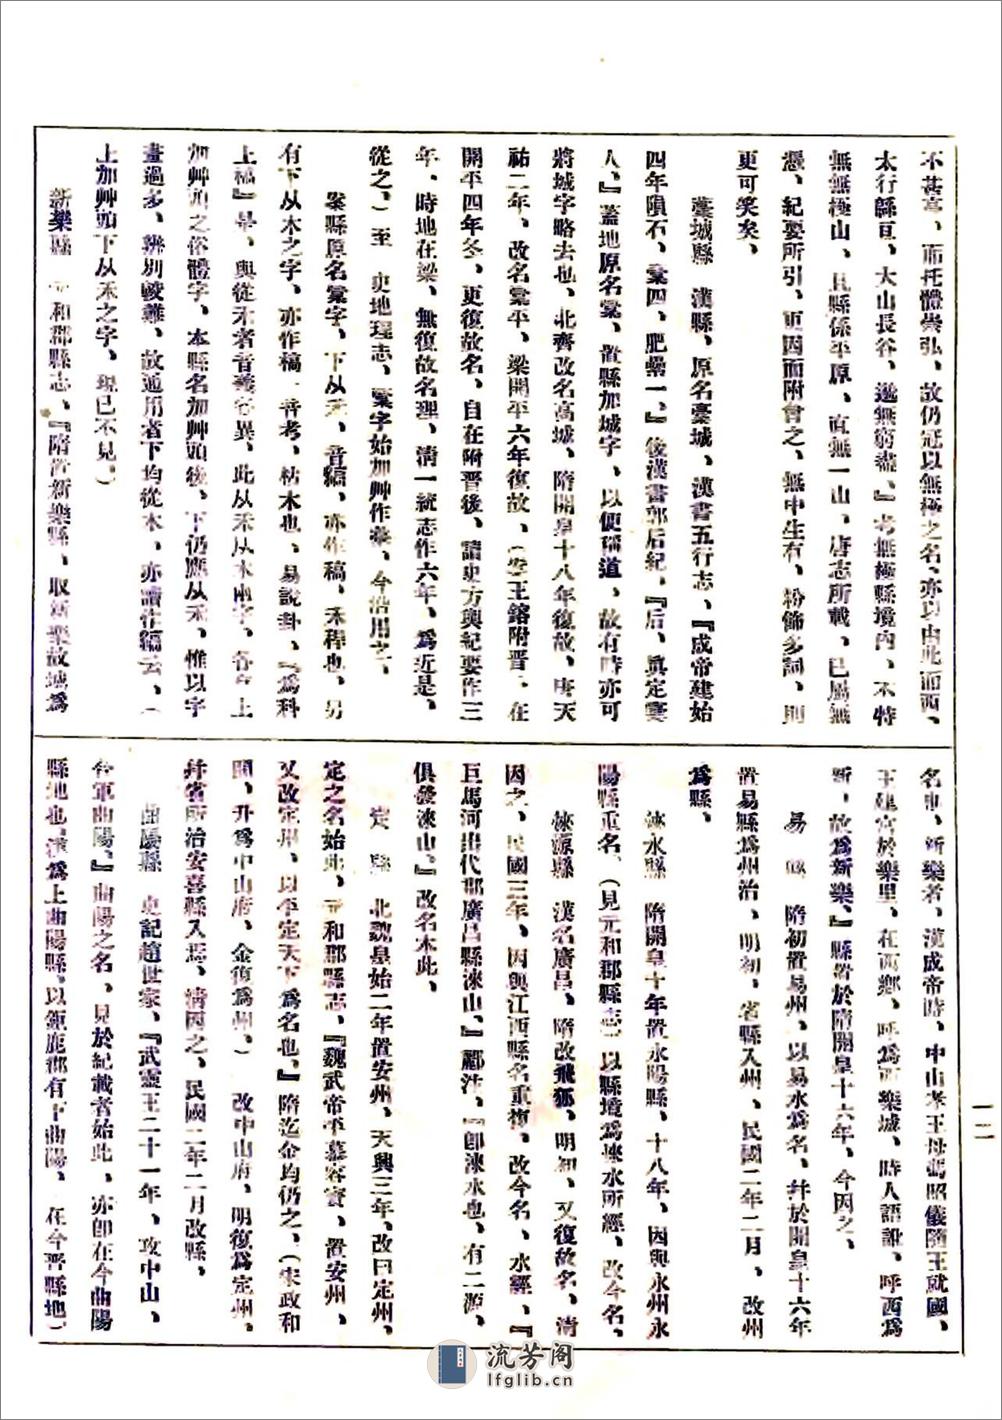 不甚高、而托體崇弘、故仍冠以無極之名、亦以由此而西、
太行緜亘、大山長谷、邈無窮盡、』考無極縣境內、不特
無無極山、且縣係平原、直無一山、唐志所載、已屬無
憑、紀要所引、更因而附會之、無中生有、粉飾多詞、則
更可笑矣、
藁城縣 漢縣、原名槀城、漢書五行志、『成帝建始
四年隕石、槀四、肥纍一、』後漢書郭后紀、『后、眞定槀
人、』蓋地原名槀、置縣加城字、以便稱道、故有時亦可
將城字略去也、北齊改名高城、隋開皇十八年復故、唐天
祐二年、改名槀平、梁開平六年復故、(按王鎔附晋、在
開平四年冬、更復故名、自在附晋後、讀史方輿紀要作三
年、時地在梁、無復故名理、清一統志作六年、爲近是、
從之、)至 史地理志、槀字始加艸作藁、今沿用之、
案縣原名稾字、下从禾、音縞、亦作稿、禾稈也、另
有下从木之字、亦作槁、音考、枯木也、易說卦、『爲科
上槁』是、與從禾者音義各異、此从禾从木兩字、各有上
加艸頭之俗體字、本縣名加艸頭後、下仍應从禾、惟以字
畫過多、辨別較難、故通用者下均從木、亦讀作縞云、(
上加艸頭下从禾之字、現已不見、)
新樂縣 元和郡縣志、『隋置新樂縣、取新樂故城爲
名也、新樂者、漢成帝時、中山孝王母馮昭儀隨王就國、
王建宮於樂里、在西鄉、呼爲西樂城、時人語訛、呼西爲
新、故爲新樂、』縣置於隋開皇十六年、今因之、
易 縣 隋初置易州、以易水爲名、幷於開皇十六年
置易縣爲州治、明初、省縣入州、民國二年二月、改州
爲縣、
淶水縣 隋開皇十年置永陽縣、十八年、因與永州永
陽縣重名、(見元和郡縣志)以縣境爲淶水所經、改今名、
淶源縣 漢名廣昌、隋改飛狐、明初、又復故名、清
因之、民國三年、因與江西縣名重複、改今名、水經、『
巨馬河出代郡廣昌縣淶山、』酈注、『卽淶水也、有二源、
俱發淶山、』改名本此、
定 縣 北魏皇始二年置安州、天興三年、改曰定州、
定之名始此、元和郡縣志、『魏武帝平慕容寶、置安州、
又改定州、以平定天下爲名也、』隋迄金均仍之、(宋政和
間、升爲中山府、金復爲州、) 改中山府、明復爲定州、
幷省所治安喜縣入焉、清因之、民國二年二月改縣、
曲陽縣 史記趙世家、『武靈王二十一年、攻中山、
合軍曲陽、』曲陽之名、見於紀載者始此、亦卽在今曲陽
縣地也、漢爲上曲陽縣、以鉅鹿郡有下曲陽、(在今晋縣地)
一二
流芳阁
lfglib.cn